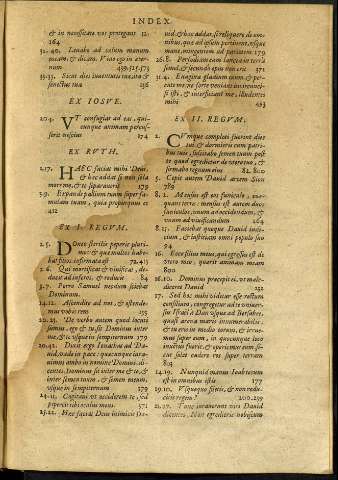 INDEX.
& in necessitate vos protegunt 12.
164
32. 40. Levabo ad cælum manum
meam, & dicam. Vivo ego in æter-
num 439.525.573
33. 25. Sicut dies juventutis tuæ ita &
senectus tua 256
EX IOSVE.
20. 4. VT confugiat ad eas, qui-
cunque animam percus-
serit nescius 274
EX RVTH.
1. 17. HÆC faciat mihi Deus,
& hæc addat si non sola
mors me, & te separaverit 179
3. 9. Expande pallium tuum super fa-
mulam tuam, quia propinquus es
412
EX I. REGVM.
2. 5. DOnec sterilis peperit pluri-
mos, & quæ multos habe-
bat filios infirmata est 72.413
2. 6. Qui mortificat & vivificat, de-
ducit ad inferos, & reducit 84
3. 7. Porro Samuel nesciebat
Dominum.
14. 12. Ascendite ad nos, & ostende-
mus vobis rem 155
20. 23. De verbo autem quod locuti
sumus, ego & tu sit Dominus inter
me, & te usque in sempiternum 179
20. 42. Dixit ergo Ionathas ad Da-
vid, vade in pace: quæcunque jura-
vimus ambo in nomine Domini, di-
centes, Dominus sit inter me & te, &
inter semen tuum, & semen meum,
usque in sempiternum 179
24. 11. Cogitavi ut occiderem te, sed
pepercit tibi oculus meus. 371
25. 22. Hæc faciat Deus inimicis Da-
vid, & hæc addat, si reliquero de om-
nibus, quæ ad ipsum pertinent, usque
mane, mingentem ad parietem. 179
26. 8. Perfodiam eum lancea in terra
semel, & secundo opus non erit 371
31. 4. Evagina gladium tuum, & per-
cute me, ne forte veniant incircunci-
si isti, & interficiant me, illudentes
mihi 493
EX II. REGVM.
2. CVmque completi fuerint dies
tui & dormieris cum patri-
bus tuis, suscitabo semen tuum post
te quod egredietur de utero tuo, &
firmabo regnum eius 82. 800
8. Cepit autem David arcem Sion
789
8. 2. Mensus est eos funiculo, coæ-
quans terræ: mensus est autem duos
funiculos, unum ad occidendum, &
unum ad vivificandum 264
8. 15. Faciebat quoque David judi-
cium, & justitiam omni populo suo
94
20. Excelsus meus, qui egressus est de
utero meo, quærit animam meam
800
16. 10. Dominus præcepit ei, ut male-
diceret David 232
17. Sed hoc mihi videtur esse rectum
consilium, congregetur ad te univer-
sus Israël à Dan usque ad Bersabee,
quasi arena maris innumerabilis:
& tu eris in medio eorum, & irrue-
mus super eum, in quocunque loco
inventus fuerit, & operiemus eum, si-
cut solet cadere ros super terram
802
14. 19. Nunquid manus Ioab tecum
est in omnibus istis 177
19. 10. Usquequo siletis, & non redu-
citis regem? 200.259
21. 17. Tunc juraverunt viri David
dicentes, Non egredieris nobiscum